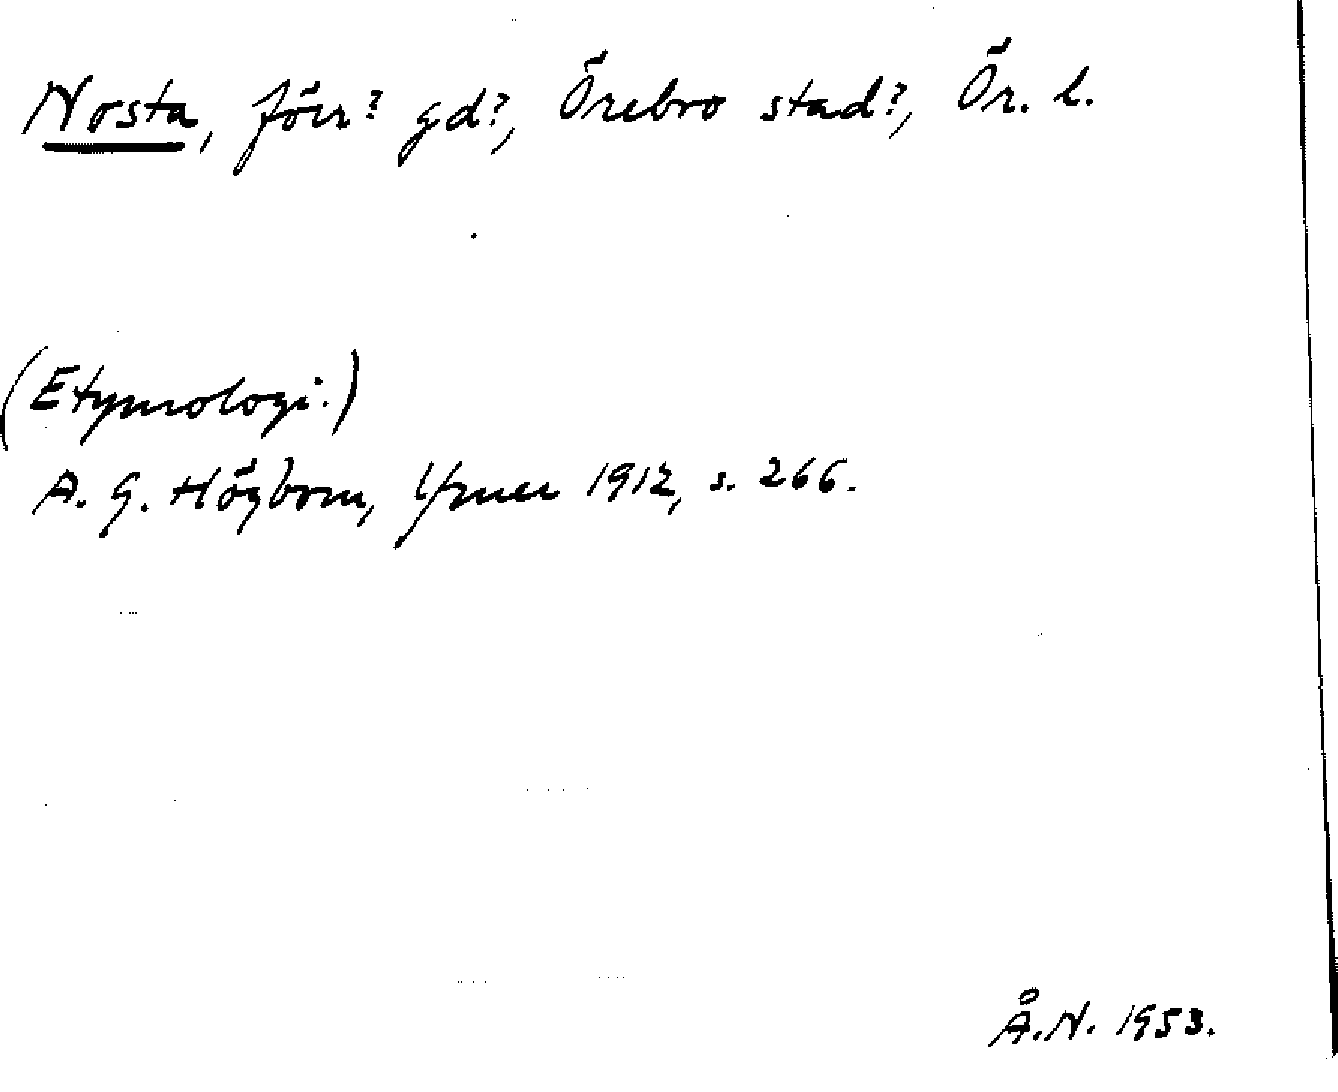 Nosta, förr? gd?, Örebro stad?, Ör. l.
(Etymologi.)
A. G. Högbom, Ymer 1912, s. 266.
Å.N. 1953.